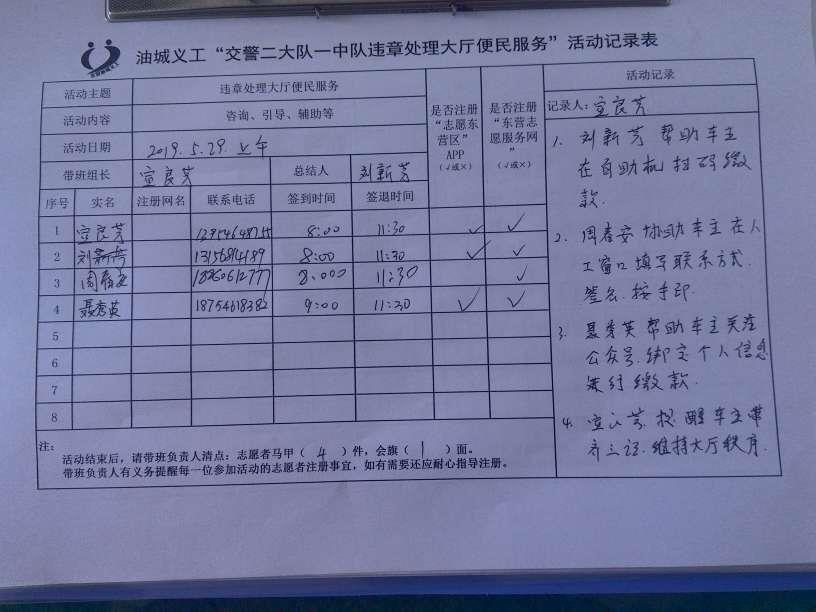 油城义工“交警二大队一中队违章处理大厅便民服务”活动记录表
活动主题 违章处理大厅便民服务
活动内容 咨询、引导、辅助等
活动日期 2019.5.29.上午
带班组长 宣良芳 总结人 刘新芳
是否注册“志愿东营区”APP（√或×）
是否注册“东营志愿服务网”（√或×）
序号 实名 注册网名 联系电话 签到时间 签退时间
1 宣良芳 8:00 11:30 √ √
2 刘新芳 8:00 11:30 √ √
3 周春安 8:000 11:30 √
4 聂秀英 18754618382 9:00 11:30 √ √
5
6
7
8
注：
活动结束后，请带班负责人清点：志愿者马甲（ 4 ）件，会旗（ 1 ）面。
带班负责人有义务提醒每一位参加活动的志愿者注册事宜，如有需要还应耐心指导注册。
活动记录
记录人：宣良芳
1. 刘新芳帮助车主
在自助机扫码缴
款.
2. 周春安协助车主在人
工窗口填写联系方式.
签名.按手印.
3. 聂秀英帮助车主关注
公众号.绑定个人信息
进行缴款.
4. 宣良芳.提醒车主带
齐三证.维持大厅秩序.